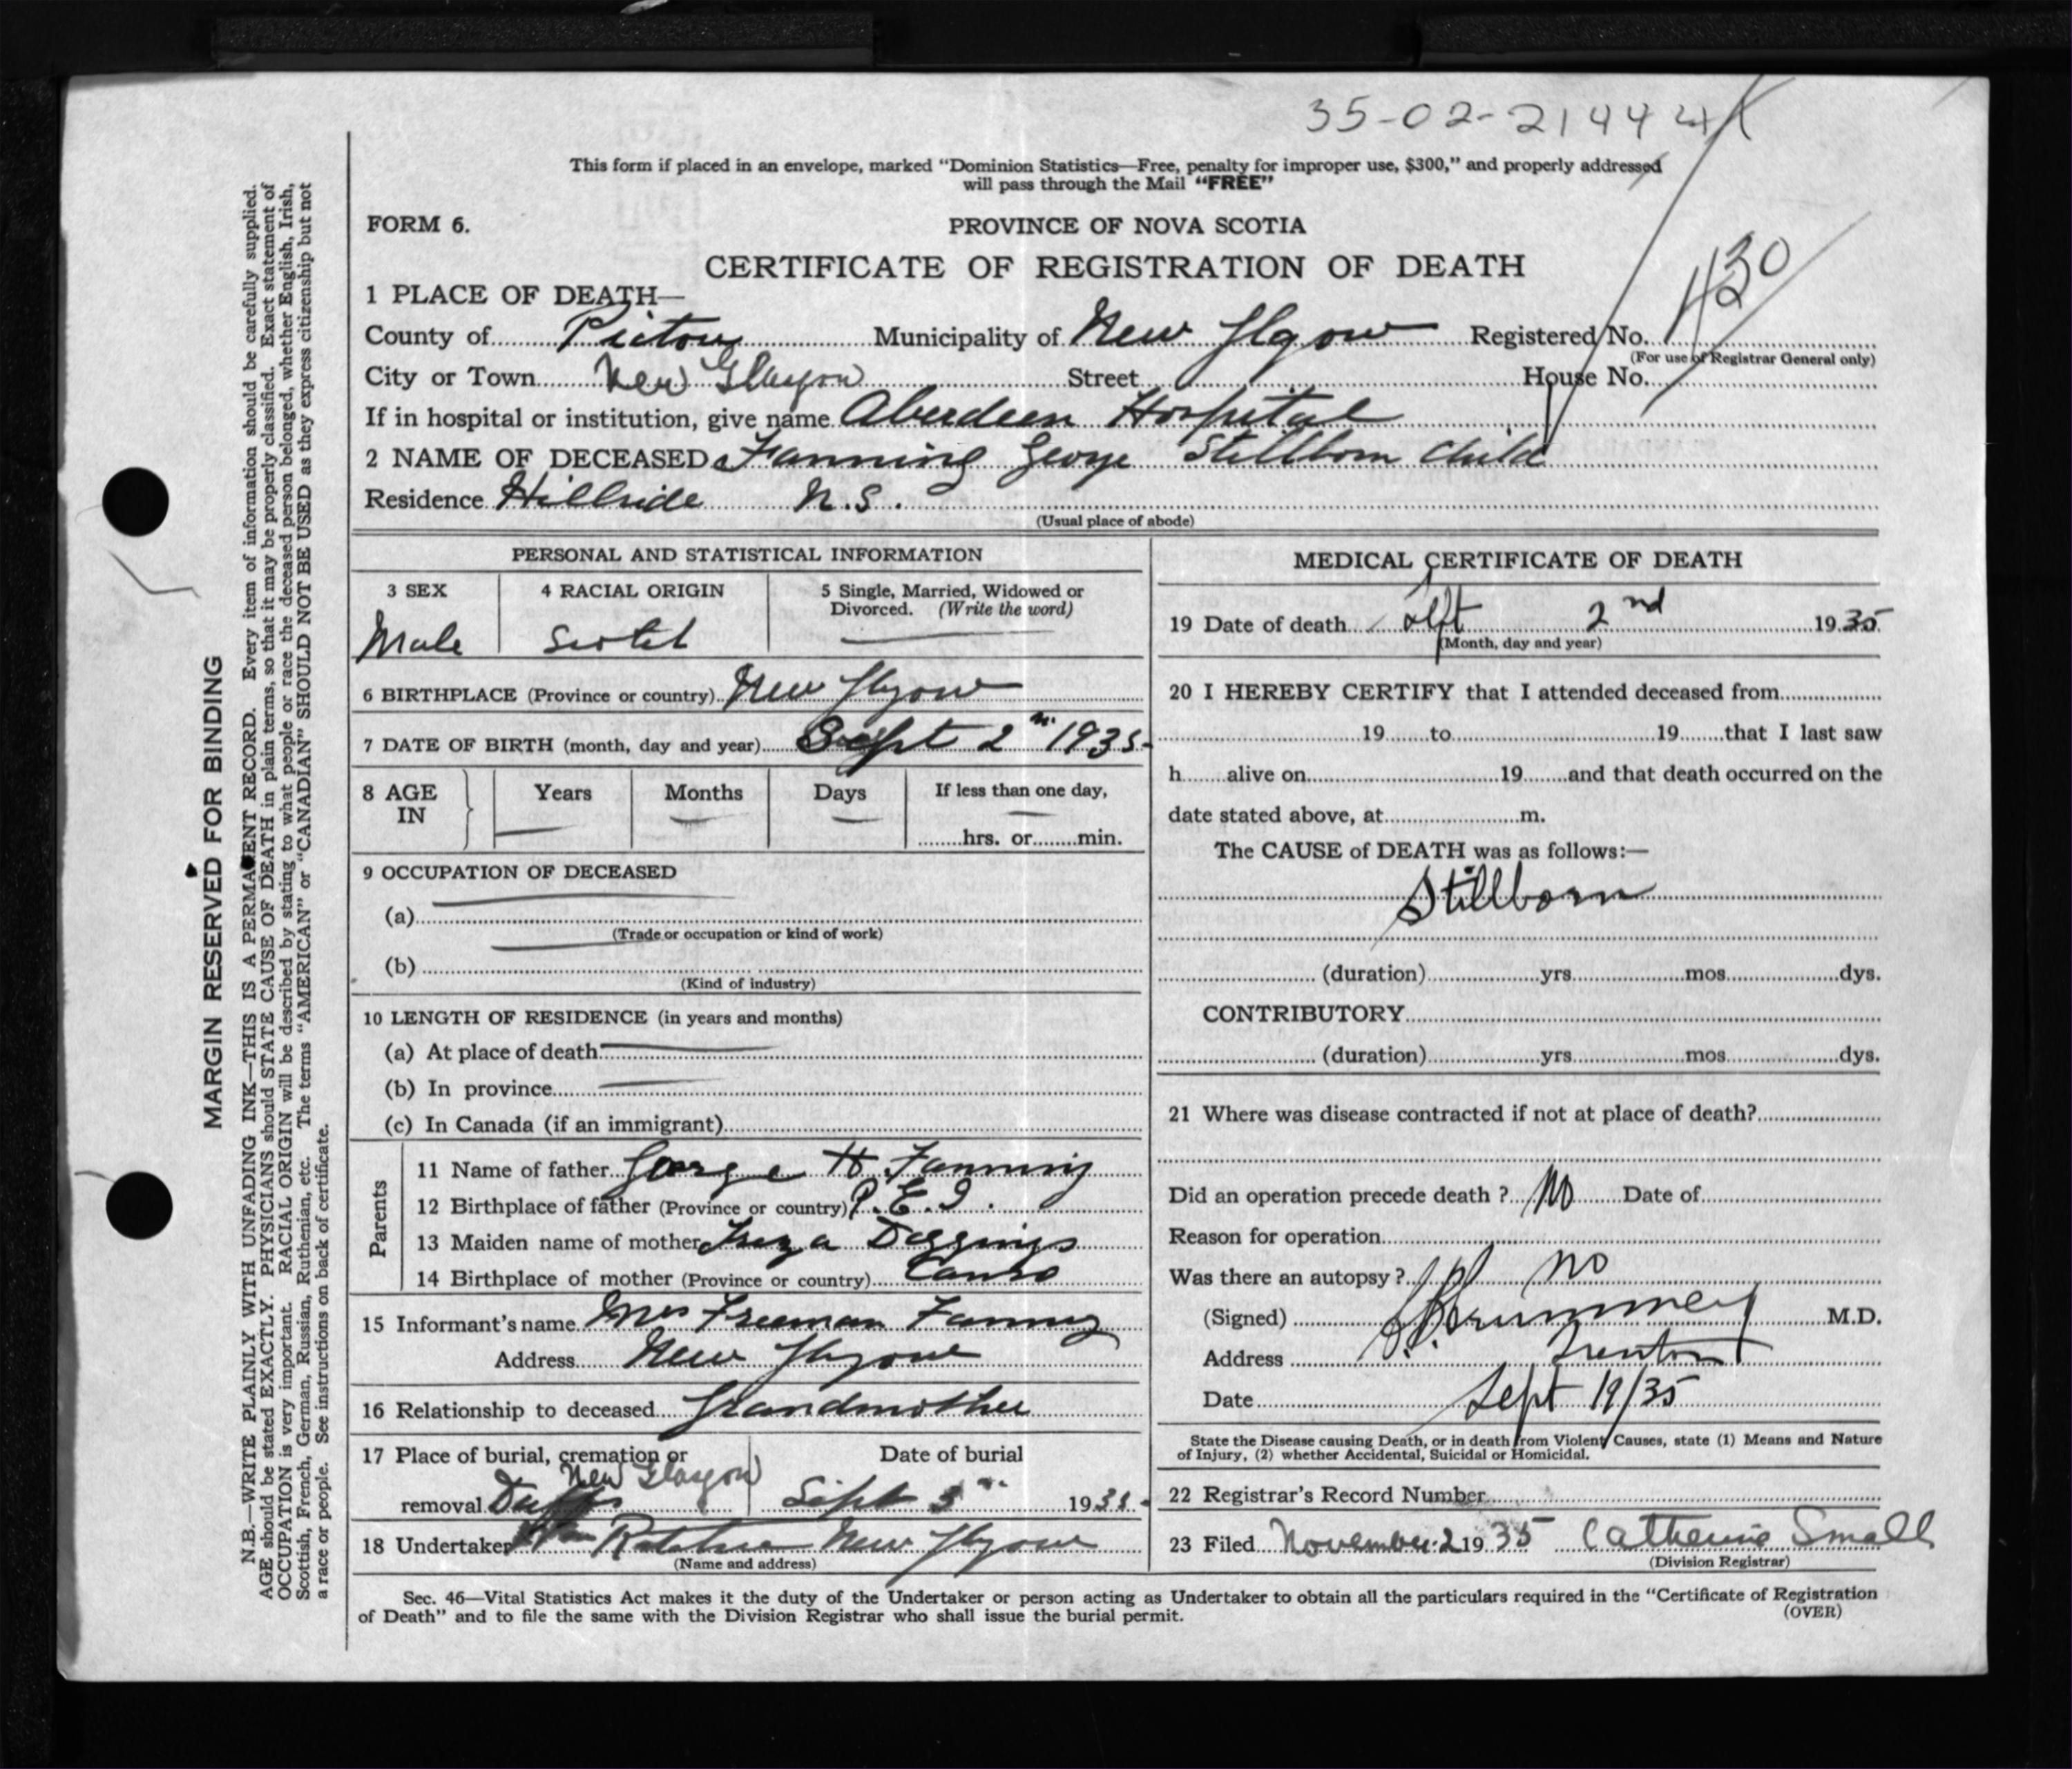 35-02-21444
This form if placed in an envelope, marked “Dominion Statistics—Free, penalty for improper use, $300,” and properly addressed
will pass through the Mail “FREE”
FORM 6.
PROVINCE OF NOVA SCOTIA
CERTIFICATE OF REGISTRATION OF DEATH
430
1 PLACE OF DEATH—
County of Pictou Municipality of New Glgow Registered No.
(For use of Registrar General only)
City or Town New Glasgow Street House No.
If in hospital or institution, give name Aberdeen Hospital
2 NAME OF DECEASED Fanning George Stillborn Child
Residence Hillside N.S.
(Usual place of abode)
PERSONAL AND STATISTICAL INFORMATION
3 SEX 4 RACIAL ORIGIN 5 Single, Married, Widowed or
Divorced. (Write the word)
Male Scotch
6 BIRTHPLACE (Province or country) New Glgow
7 DATE OF BIRTH (month, day and year) Sept 2 1935
8 AGE IN Years Months Days If less than one day,
hrs. or min.
9 OCCUPATION OF DECEASED
(a)
(Trade or occupation or kind of work)
(b)
(Kind of industry)
10 LENGTH OF RESIDENCE (in years and months)
(a) At place of death
(b) In province
(c) In Canada (if an immigrant)
Parents
11 Name of father George H Fanning
12 Birthplace of father (Province or country) P.E.I.
13 Maiden name of mother
14 Birthplace of mother (Province or country) Canso
15 Informant's name Mrs Freeman Fanning
Address New Glgow
16 Relationship to deceased Grandmother
17 Place of burial, cremation or Date of burial
New Glasgow
removal Sept 3 1935
18 Undertaker New Glgow
(Name and address)
MEDICAL CERTIFICATE OF DEATH
19 Date of death Sept 2nd 1935
(Month, day and year)
20 I HEREBY CERTIFY that I attended deceased from
19 to 19 that I last saw
h alive on 19 and that death occurred on the
date stated above, at m.
The CAUSE of DEATH was as follows:—
Stillborn
(duration) yrs mos dys.
CONTRIBUTORY
(duration) yrs mos dys.
21 Where was disease contracted if not at place of death?
Did an operation precede death ? No Date of
Reason for operation
Was there an autopsy ? No
(Signed) M.D.
Address Trenton
Date Sept 19/35
State the Disease causing Death, or in death from Violent Causes, state (1) Means and Nature
of Injury, (2) whether Accidental, Suicidal or Homicidal.
22 Registrar's Record Number
23 Filed November 2 1935 Catherine Small
(Division Registrar)
Sec. 46—Vital Statistics Act makes it the duty of the Undertaker or person acting as Undertaker to obtain all the particulars required in the “Certificate of Registration
of Death” and to file the same with the Division Registrar who shall issue the burial permit.
(OVER)
MARGIN RESERVED FOR BINDING
N.B.—WRITE PLAINLY WITH UNFADING INK—THIS IS A PERMANENT RECORD. Every item of information should be carefully supplied.
AGE should be stated EXACTLY. PHYSICIANS should STATE CAUSE OF DEATH in plain terms, so that it may be properly classified. Exact statement of
OCCUPATION is very important. RACIAL ORIGIN will be described by stating to what people or race the deceased person belonged, whether English, Irish,
Scottish, French, German, Russian, Ruthenian, etc. The terms “AMERICAN” or “CANADIAN” SHOULD NOT BE USED as they express citizenship but not
a race or people. See instructions on back of certificate.